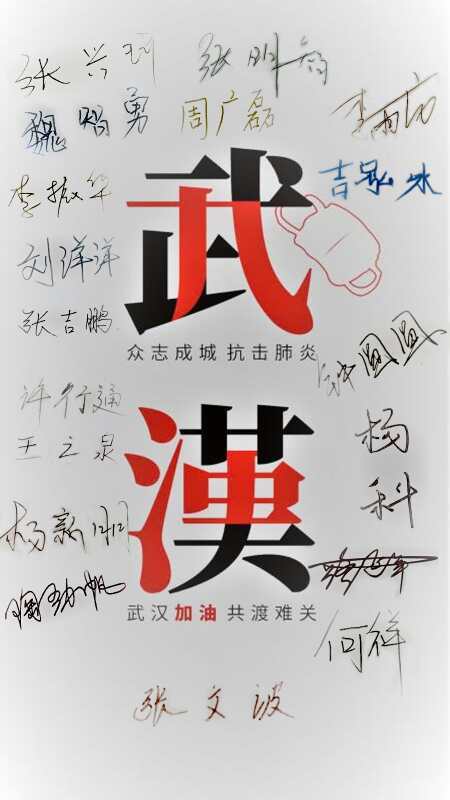 张兴刚 张明
魏 勇 周广磊
李雨
李振华 吉 冰
武
刘洋洋
张吉鹏
众志成城 抗击肺炎
圆圆
许行通
漢
杨
王之泉
科
杨新
武汉加油 共渡难关
何祥
张文波